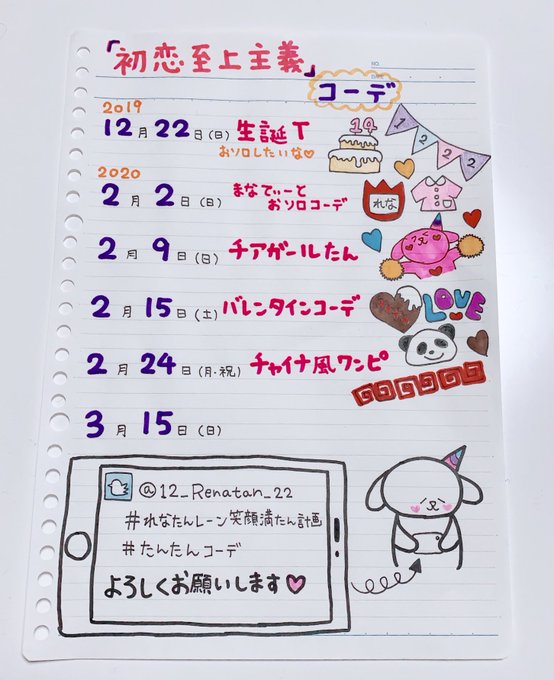 「初恋至上主義」
コーデ
NO.
DATE
2019
12月22日(日) 生誕T
おソロしたいな♡
14
1222
2020
2月2日(日) まなてぃーと
おソロコーデ
れな
2月9日(日) チアガールたん
2月15日(土) バレンタインコーデ
LOVE
2月24日(月・祝) チャイナ風ワンピ
3月15日(日)
@12_Renatan_22
#れなたんレーン笑顔満たん計画
#たんたんコーデ
よろしくお願いします♡